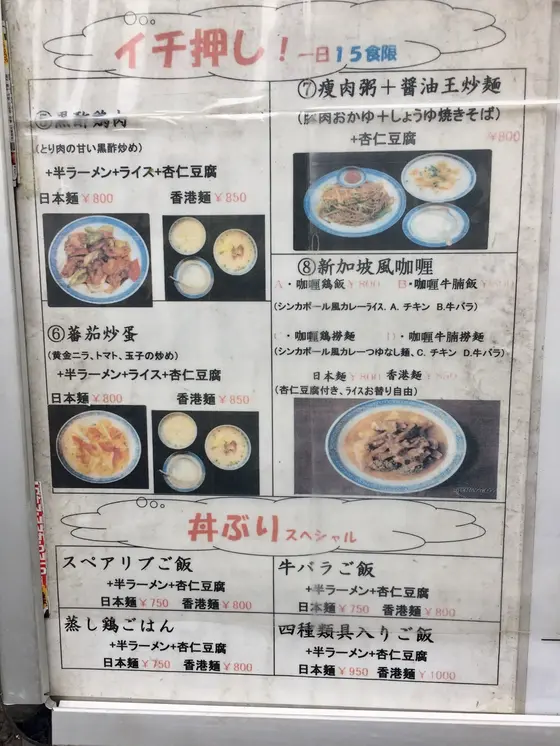 イチ押し！一日15食限
黒酢鶏肉
(とり肉の甘い黒酢炒め)
+半ラーメン+ライス+杏仁豆腐
日本麺￥800 香港麺￥850
⑥蕃茄炒蛋
(黄金ニラ、トマト、玉子の炒め)
+半ラーメン+ライス+杏仁豆腐
日本麺￥800 香港麺￥850
⑦瘦肉粥＋醤油王炒麺
(豚肉おかゆ＋しょうゆ焼きそば)
+杏仁豆腐 ￥800
⑧新加坡風咖喱
A・咖喱鶏飯￥800 B・咖喱牛腩飯
(シンカポール風カレーライス. A. チキン B.牛バラ)
・咖喱鶏撈麺 ・咖喱牛腩撈麺
(シンカポール風カレーつゆなし麺、C. チキン D.牛バラ)
日本麺￥800 香港麺￥850
(杏仁豆腐付き、ライスお替り自由)
丼ぶりスペシャル
スペアリブご飯
+半ラーメン+杏仁豆腐
日本麺￥750 香港麺￥800
牛バラご飯
+半ラーメン+杏仁豆腐
日本麺￥750 香港麺￥800
蒸し鶏ごはん
+半ラーメン+杏仁豆腐
日本麺￥750 香港麺￥800
四種類具入りご飯
+半ラーメン+杏仁豆腐
日本麺￥950 香港麺￥1000